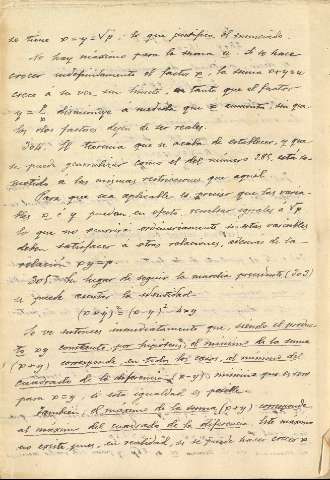 se tiene x = y = √p; lo que justifica el enunciado.
No hay máximo para la suma u. Si se hace
crecer indefinidamente el factor x, la suma x+y=u
crece a su vez sin límite, en tanto que el factor
y = p/x disminuye a medida que x aumenta, sin que
los dos factores dejen de ser reales.
304. El teorema que se acaba de establecer, y que
se puede generalizar como el del número 285, está so-
metido a las mismas restricciones que aquel.
Para que sea aplicable es preciso que las varia-
bles x é y puedan en efecto, resultar iguales a √p
lo que no ocurrirá si estas variables
deben satisfacer a otras relaciones, además de la
relación xy = p.
305. En lugar de seguir la marcha precedente (303)
se puede sentar la identidad
(x+y)² = (x-y)² + 4xy
Se ve entonces inmediatamente que, siendo el produc-
to xy constante, por hipótesis, el mínimo de la suma
(x+y) corresponde, en todos los casos, al mínimo del
cuadrado de la diferencia (x-y), mínimo que es cero
para x=y, si esta igualdad es posible.
También, el máximo de la suma (x+y) corresponde
al máximo del cuadrado de la diferencia. Este máximo
no existe pues, en realidad, si se puede hacer crecer x